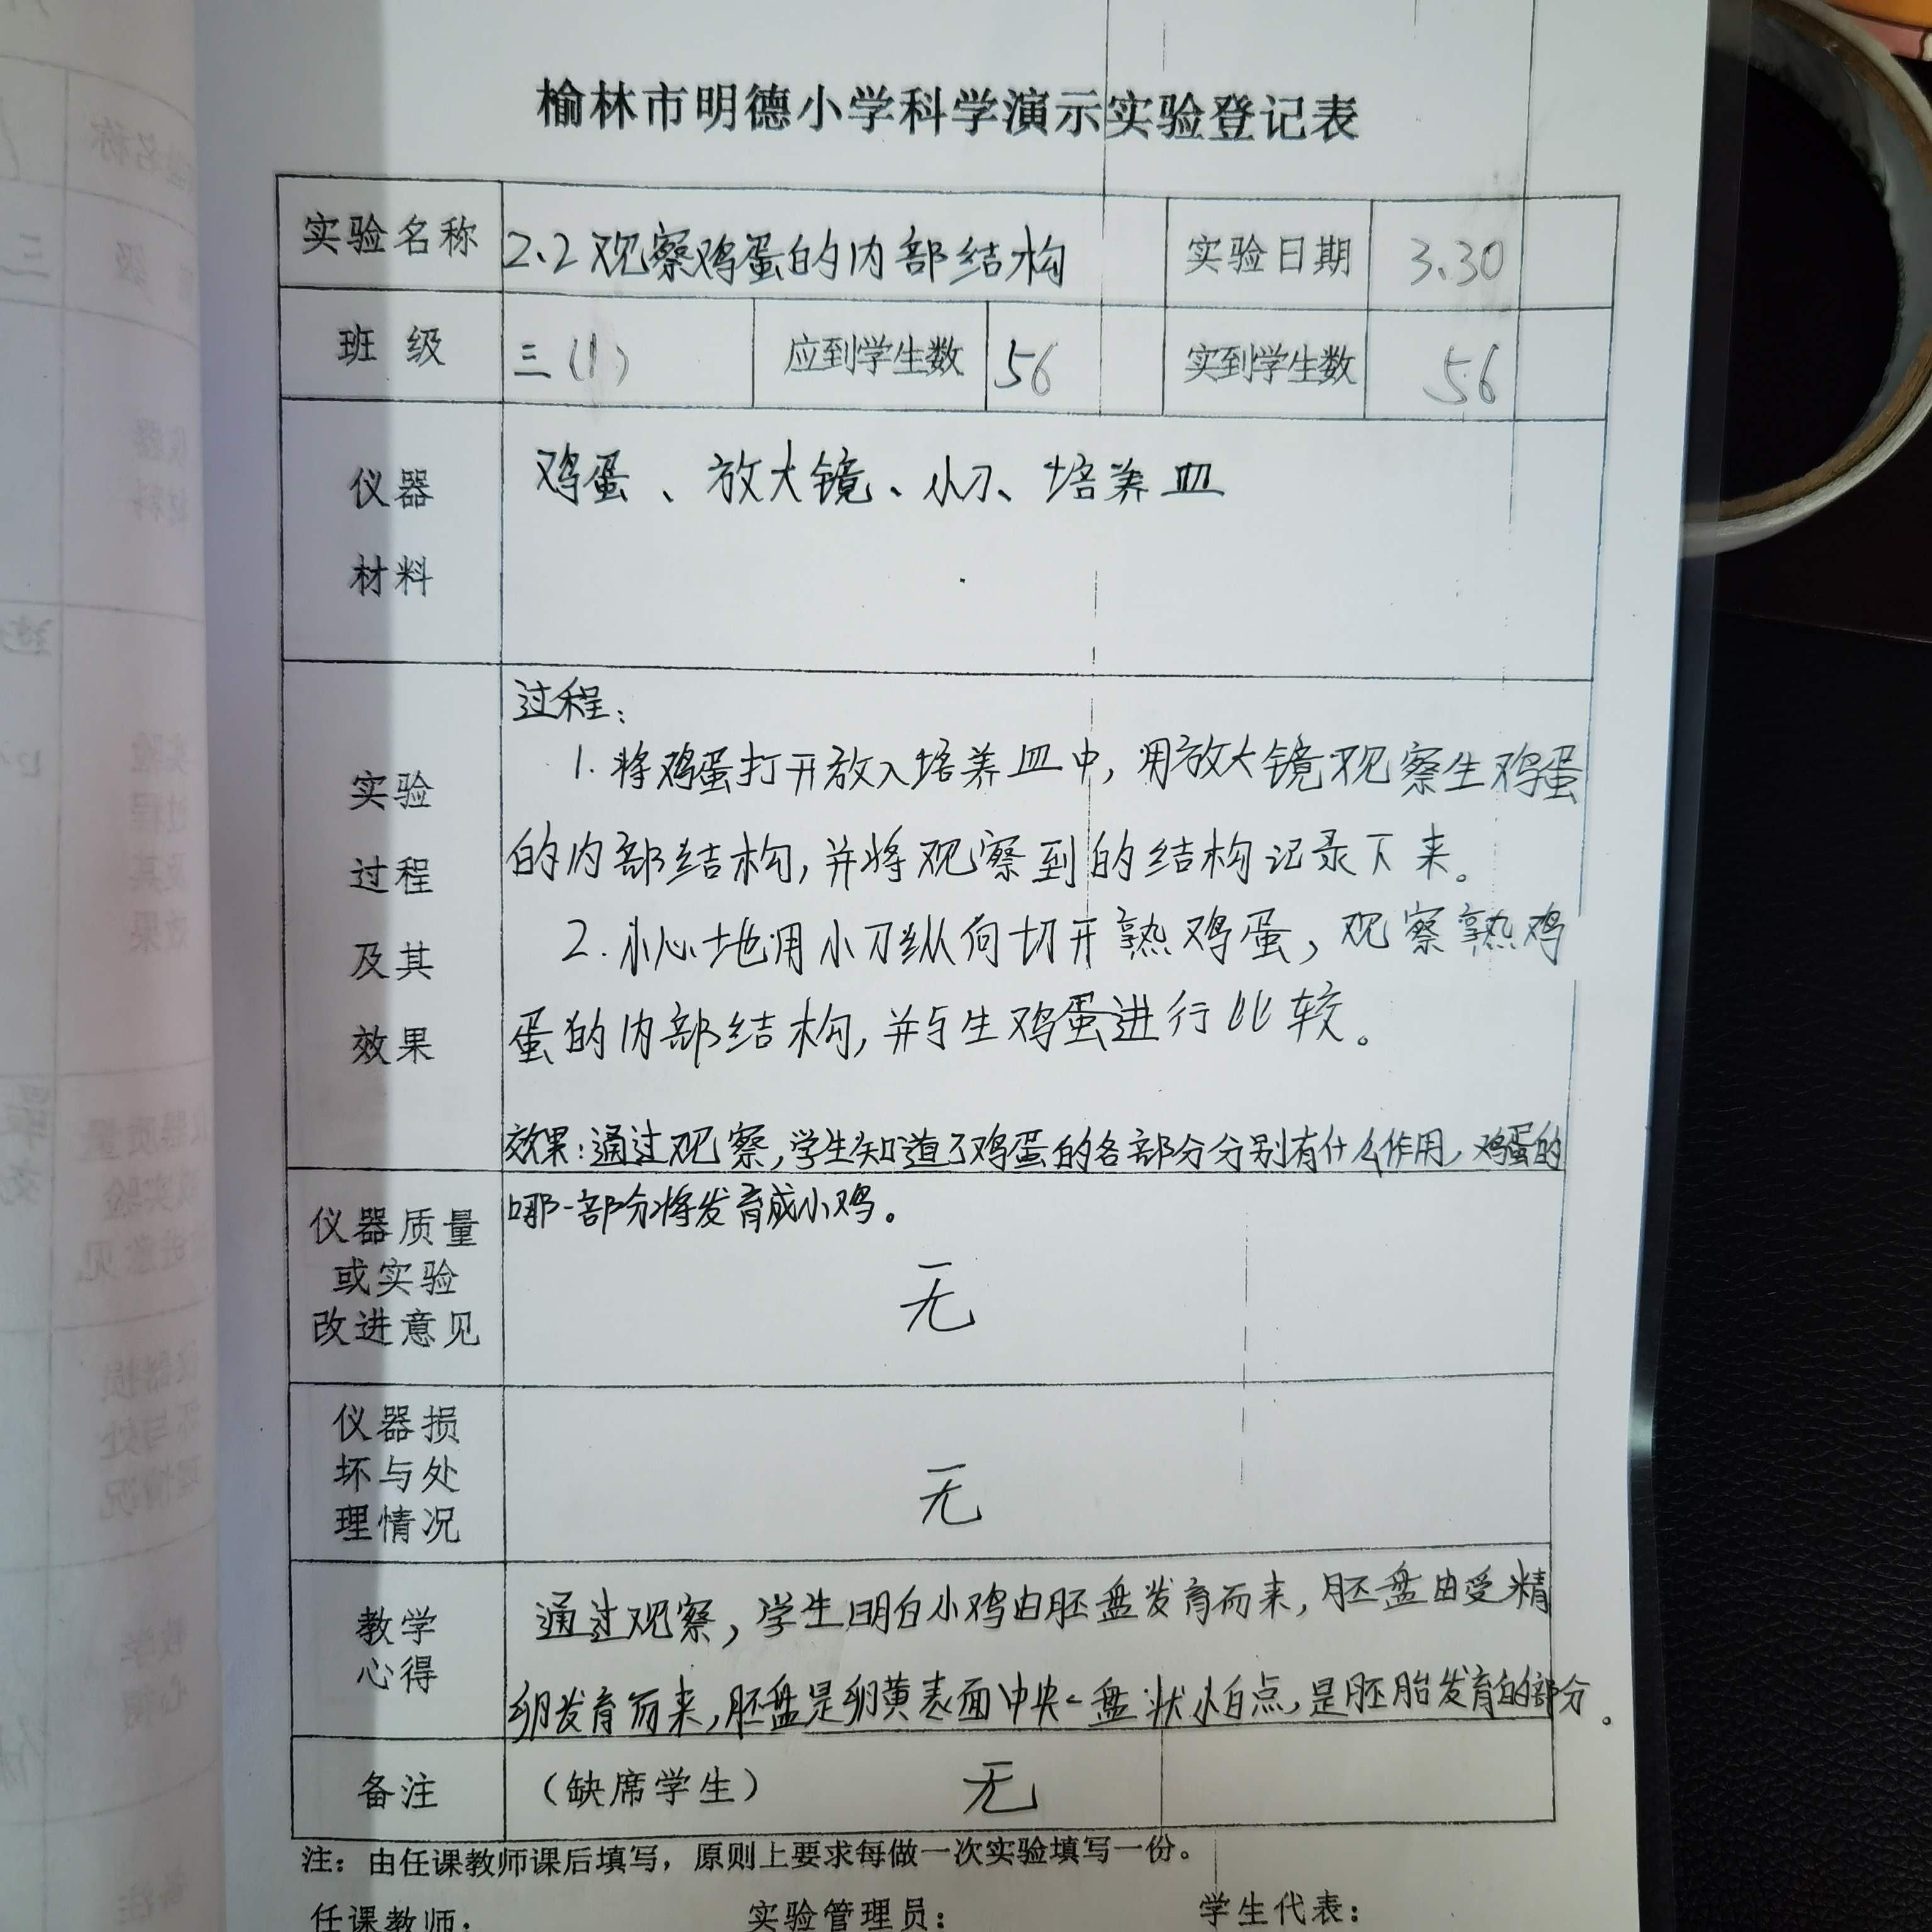 榆林市明德小学科学演示实验登记表
实验名称 2.2观察鸡蛋的内部结构 实验日期 3.30
班级 三(1) 应到学生数 56 实到学生数 56
仪器
材料
鸡蛋、放大镜、小刀、培养皿
实验
过程
及其
效果
过程:
1.将鸡蛋打开放入培养皿中,用放大镜观察生鸡蛋
的内部结构,并将观察到的结构记录下来。
2.小心地用小刀纵向切开熟鸡蛋,观察熟鸡
蛋的内部结构,并与生鸡蛋进行比较。
效果:通过观察,学生知道了鸡蛋的各部分分别有什么作用,鸡蛋的
哪一部分将发育成小鸡。
仪器质量
或实验
改进意见
无
仪器损
坏与处
理情况
无
教学
心得
通过观察,学生明白小鸡由胚盘发育而来,胚盘由受精
卵发育而来,胚盘是卵黄表面中央一盘状小白点,是胚胎发育的部分。
备注 (缺席学生) 无
注:由任课教师课后填写,原则上要求每做一次实验填写一份。
任课教师: 实验管理员: 学生代表: